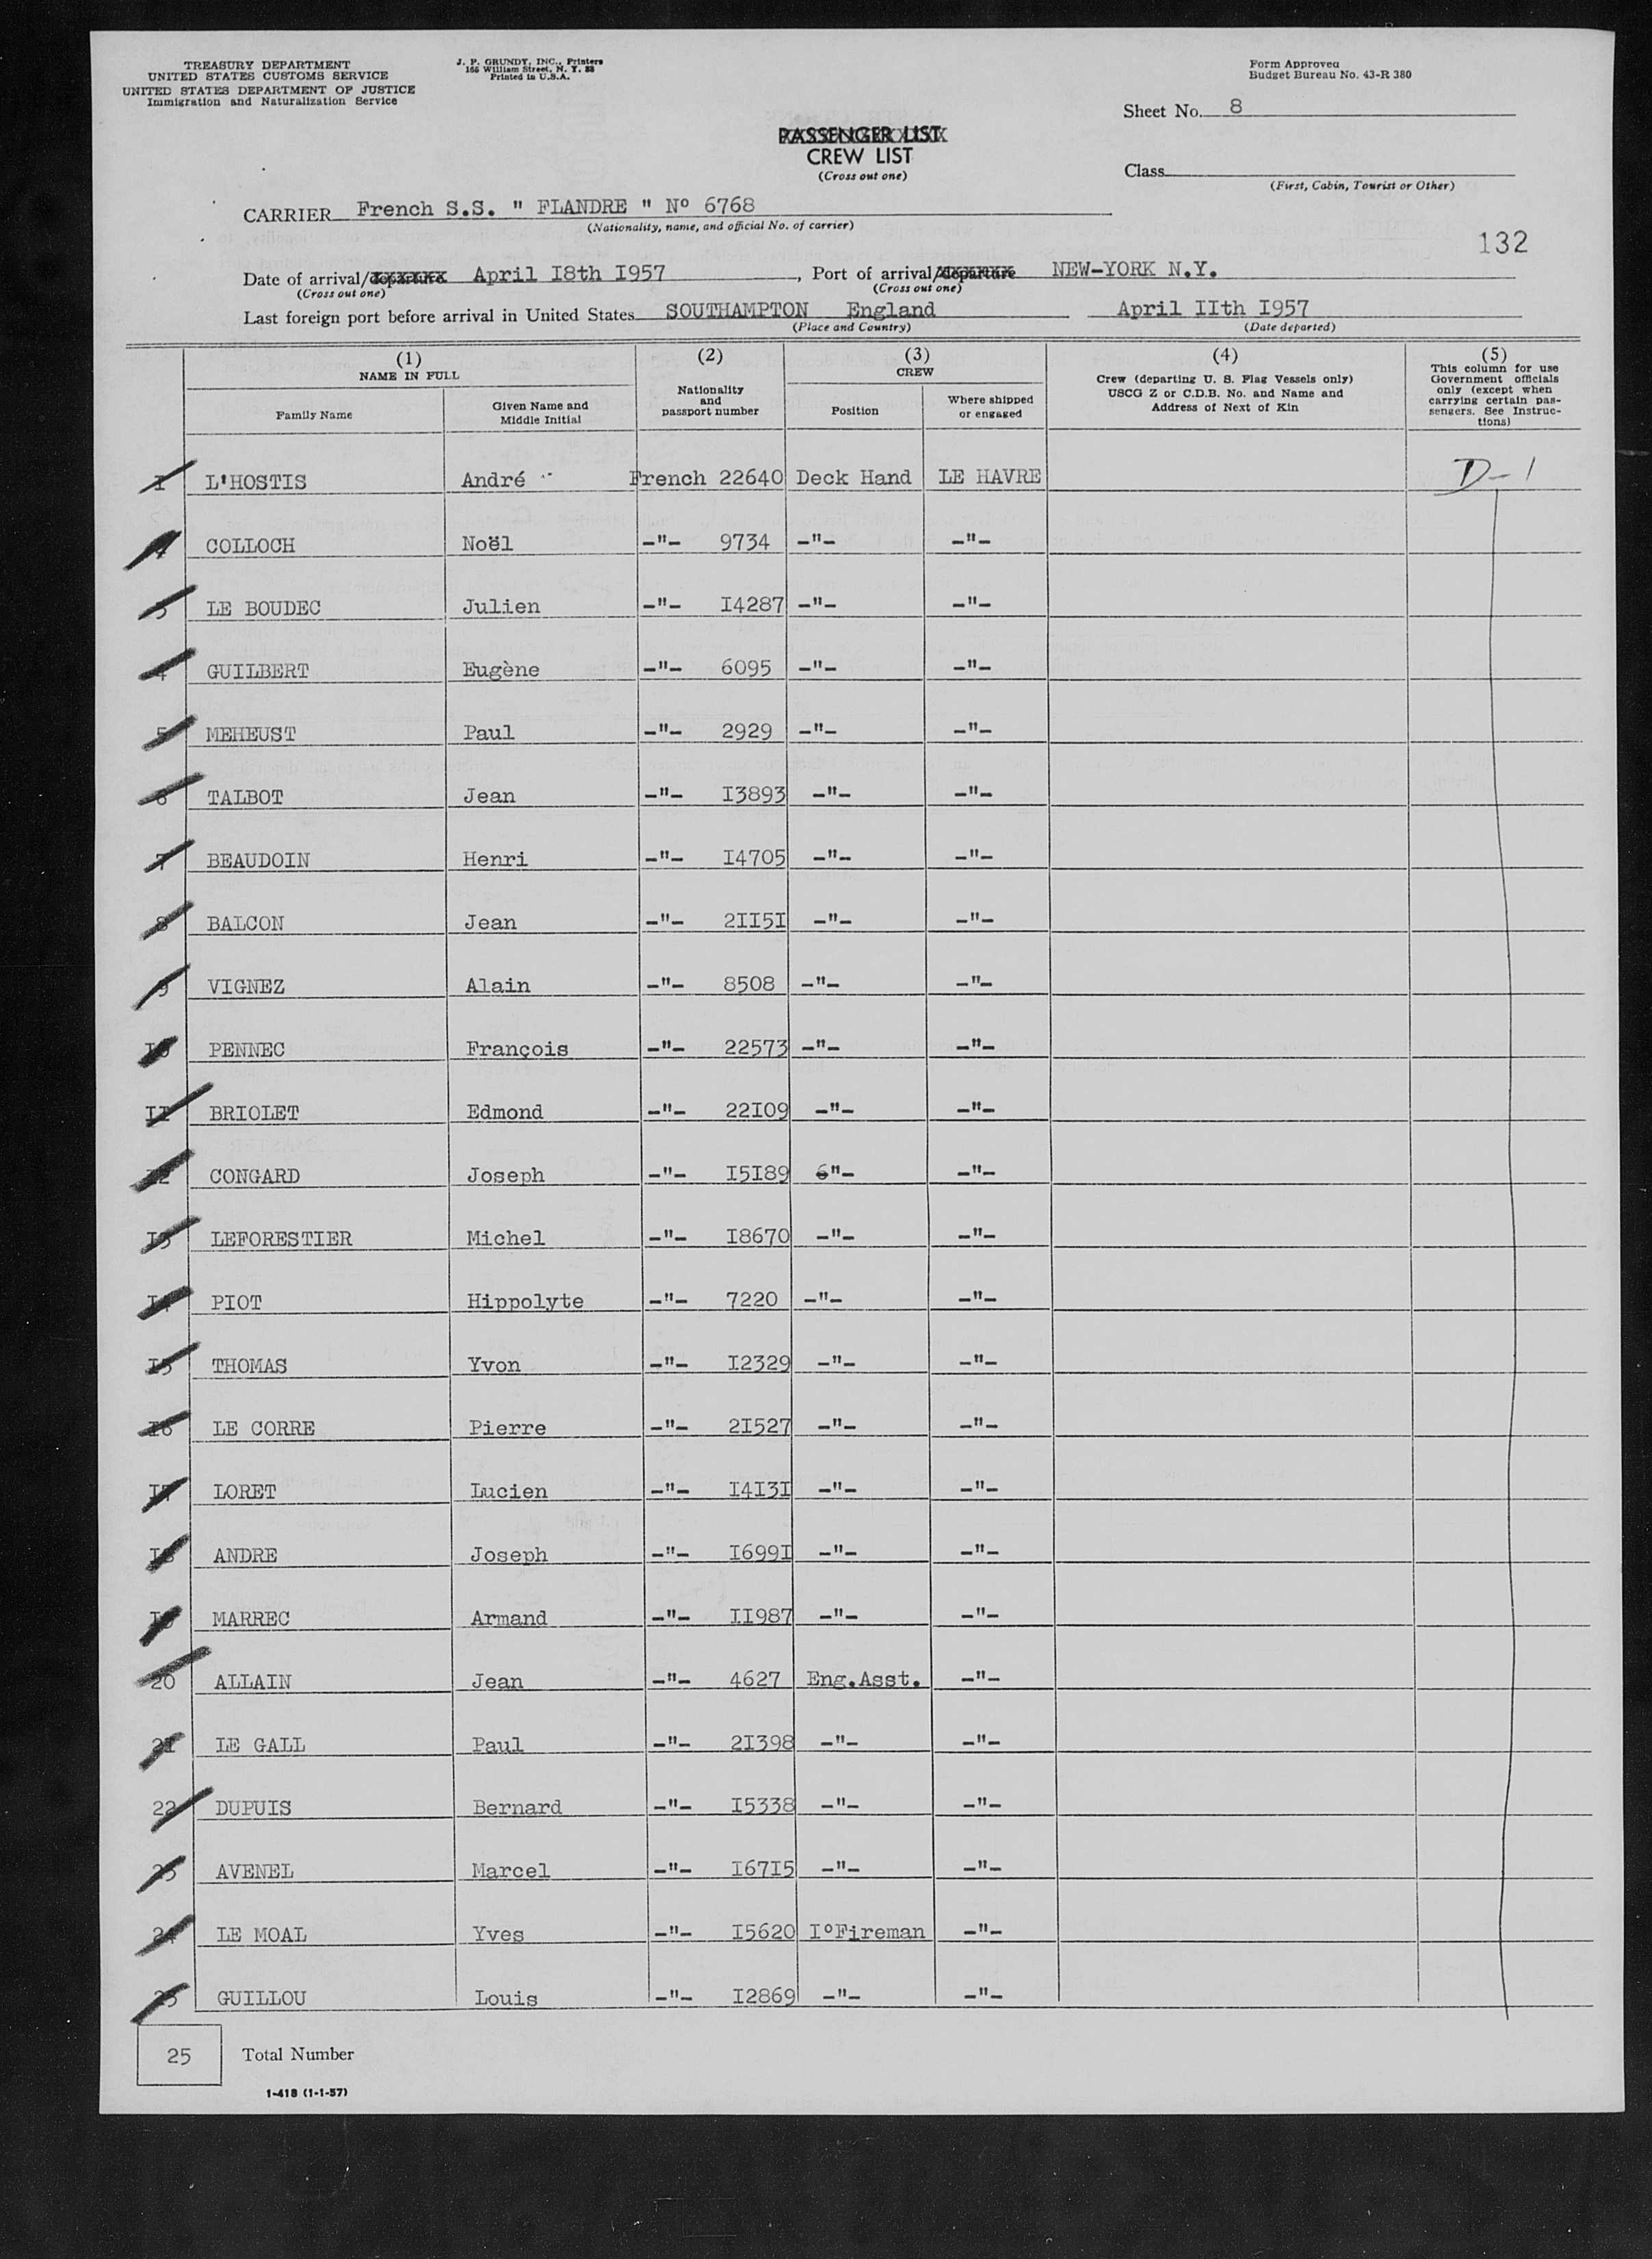 TREASURY DEPARTMENT
UNITED STATES CUSTOMS SERVICE
UNITED STATES DEPARTMENT OF JUSTICE
Immigration and Naturalization Service
J. P. GRUNDY, INC., Printers
166 William Street, N. Y. 38
Printed in U.S.A.
Form Approved
Budget Bureau No. 43-R 380
Sheet No. 8
PASSENGER LIST
CREW LIST
(Cross out one)
Class
(First, Cabin, Tourist or Other)
CARRIER French S.S. " FLANDRE " Nº 6768
(Nationality, name, and official No. of carrier)
132
Date of arrival/departure April I8th I957, Port of arrival/departure NEW-YORK N.Y.
(Cross out one) (Cross out one)
Last foreign port before arrival in United States SOUTHAMPTON England April IIth I957
(Place and Country) (Date departed)
(1) (2) (3) (4) (5)
NAME IN FULL
Family Name
Given Name and Middle Initial
Nationality and passport number
CREW
Position
Where shipped or engaged
Crew (departing U. S. Flag Vessels only)
USCG Z or C.D.B. No. and Name and
Address of Next of Kin
This column for use
Government officials
only (except when
carrying certain pas-
sengers. See Instruc-
tions)
I L'HOSTIS André French 22640 Deck Hand LE HAVRE D-1
COLLOCH Noël -"- 9734 -"- -"-
3 LE BOUDEC Julien -"- I4287 -"- -"-
4 GUILBERT Eugène -"- 6095 -"- -"-
5 MEHEUST Paul -"- 2929 -"- -"-
6 TALBOT Jean -"- I3893 -"- -"-
7 BEAUDOIN Henri -"- I4705 -"- -"-
8 BALCON Jean -"- 2II5I -"- -"-
9 VIGNEZ Alain -"- 8508 -"- -"-
I0 PENNEC François -"- 22573 -"- -"-
II BRIOLET Edmond -"- 22I09 -"- -"-
I2 CONGARD Joseph -"- I5I89 6"- -"-
I3 LEFORESTIER Michel -"- I8670 -"- -"-
I4 PIOT Hippolyte -"- 7220 -"- -"-
I5 THOMAS Yvon -"- I2329 -"- -"-
I6 LE CORRE Pierre -"- 2I527 -"- -"-
I7 LORET Lucien -"- I4I3I -"- -"-
I8 ANDRE Joseph -"- I699I -"- -"-
I9 MARREC Armand -"- II987 -"- -"-
20 ALLAIN Jean -"- 4627 Eng.Asst. -"-
2I LE GALL Paul -"- 2I398 -"- -"-
22 DUPUIS Bernard -"- I5338 -"- -"-
23 AVENEL Marcel -"- I67I5 -"- -"-
24 LE MOAL Yves -"- I5620 IºFireman -"-
25 GUILLOU Louis -"- I2869 -"- -"-
25 Total Number
1-418 (1-1-57)